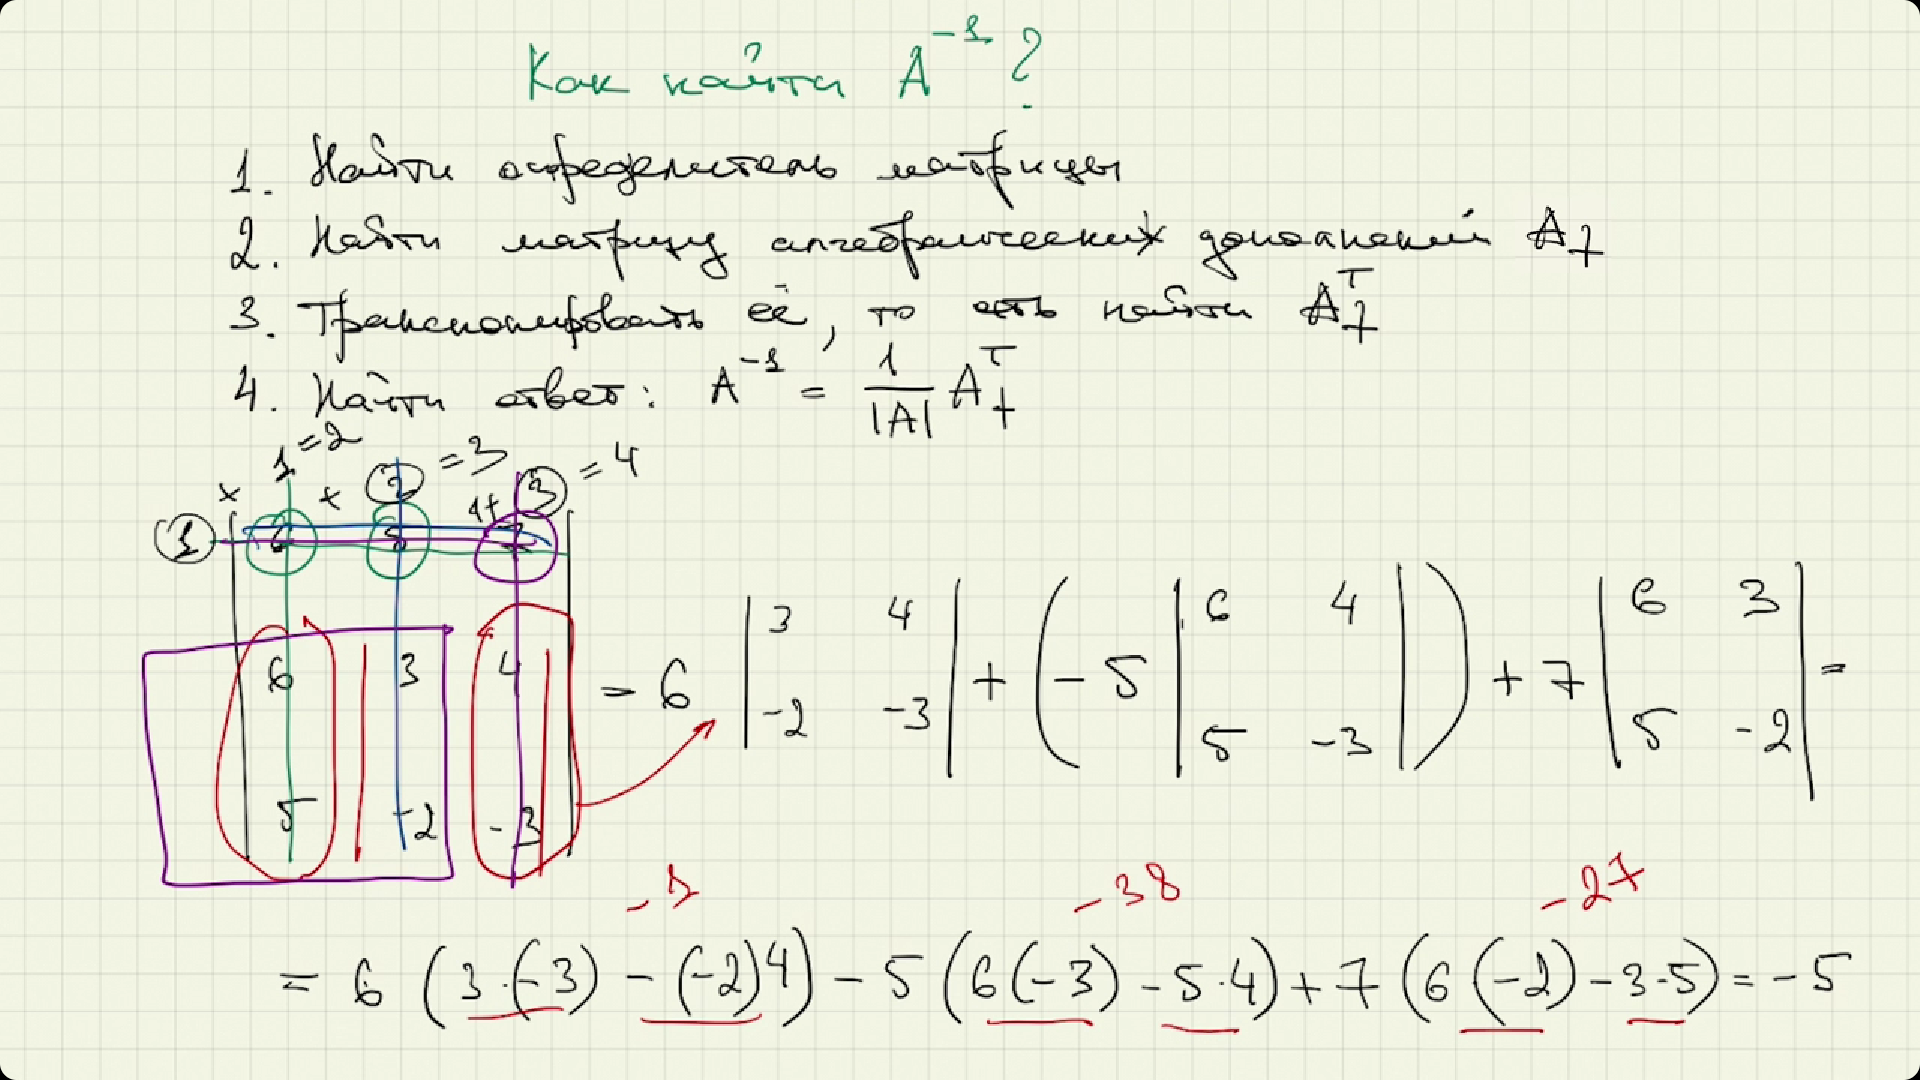 Как найти A⁻¹?
1. Найти определитель матрицы
2. Найти матрицу алгебраических дополнений A₊
3. Транспонировать её, то есть найти A₊ᵀ
4. Найти ответ: A⁻¹ = 1/|A| A₊ᵀ
1 =2 2 =3 3 =4
1 6 5 7
6 3 4
5 -2 -3
= 6 |3 4; -2 -3| + (-5 |6 4; 5 -3|) + 7 |6 3; 5 -2| =
-1 -38 -27
= 6 (3·(-3) - (-2)4) - 5 (6(-3) - 5·4) + 7 (6(-2) - 3·5) = -5